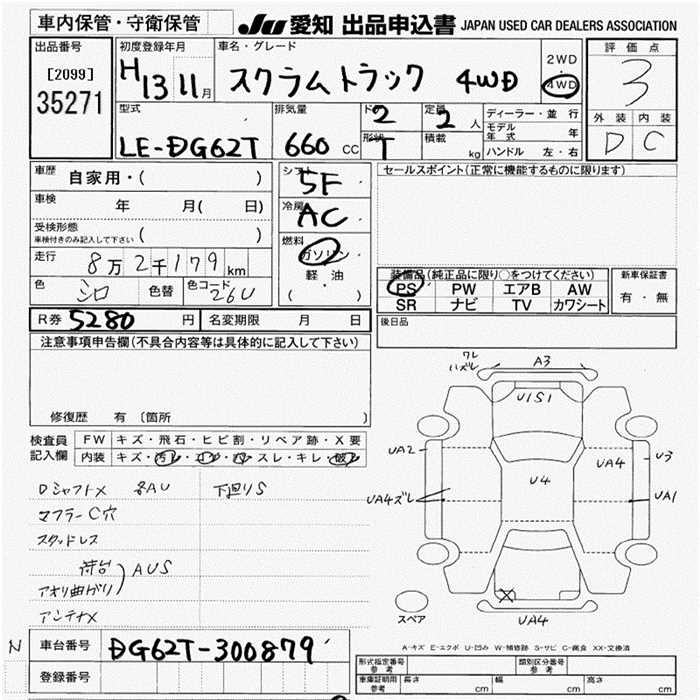 車内保管・守衛保管
JU 愛知 出品申込書 JAPAN USED CAR DEALERS ASSOCIATION
出品番号
[2099]
35271
初度登録年月
H13 11月
車名・グレード
スクラムトラック 4WD
2WD
・
4WD
評価点
3
外装 内装
D C
型式
LE-DG62T
排気量
660 CC
ド 2
形状 T
定員
2人
積載
kg
ディーラー・並行
モデル年式 年
ハンドル 左・右
車歴
自家用・( )
車検
年 月( 日)
受検形態
車検付きのみ記入して下さい ( )
走行
8万2千179km
色
シロ
色替
色コード
26U
R券 5280 円
名変期限 月 日
シフト
5F
冷房
AC
燃料
ガソリン
軽・油
( ・ )
セールスポイント(正常に機能するものに限ります)
装備品(純正品に限り○をつけてください)
PS PW エアB AW
SR ナビ TV カワシート
新車保証書
有・無
後日品
注意事項申告欄(不具合内容等は具体的に記入して下さい)
修復歴 有 〔箇所 〕
検査員
記入欄
FW キズ・飛石・ヒビ割・リペア跡・X要
内装 キズ・汚レ・コゲ・穴・スレ・キレ・破レ
Dシャフト× 各AU 下廻りS
マフラーC穴
スタッドレス
荷台
アオリ曲ガリ
AUS
アンテナ×
ワレ
ハズレ
A3
U1S1
UA2
U3
UA4
U4
UA4ズレ
UA1
X
UA4
スペア
A-キズ E-エクボ U-凹み W-補修跡 S-サビ C-腐食 XX-交換済
N
車台番号
DG62T-300879
登録番号
形式指定番号
参考
類別区分番号
参考
車庫証明用
参考
長さ cm
幅 cm
高さ cm